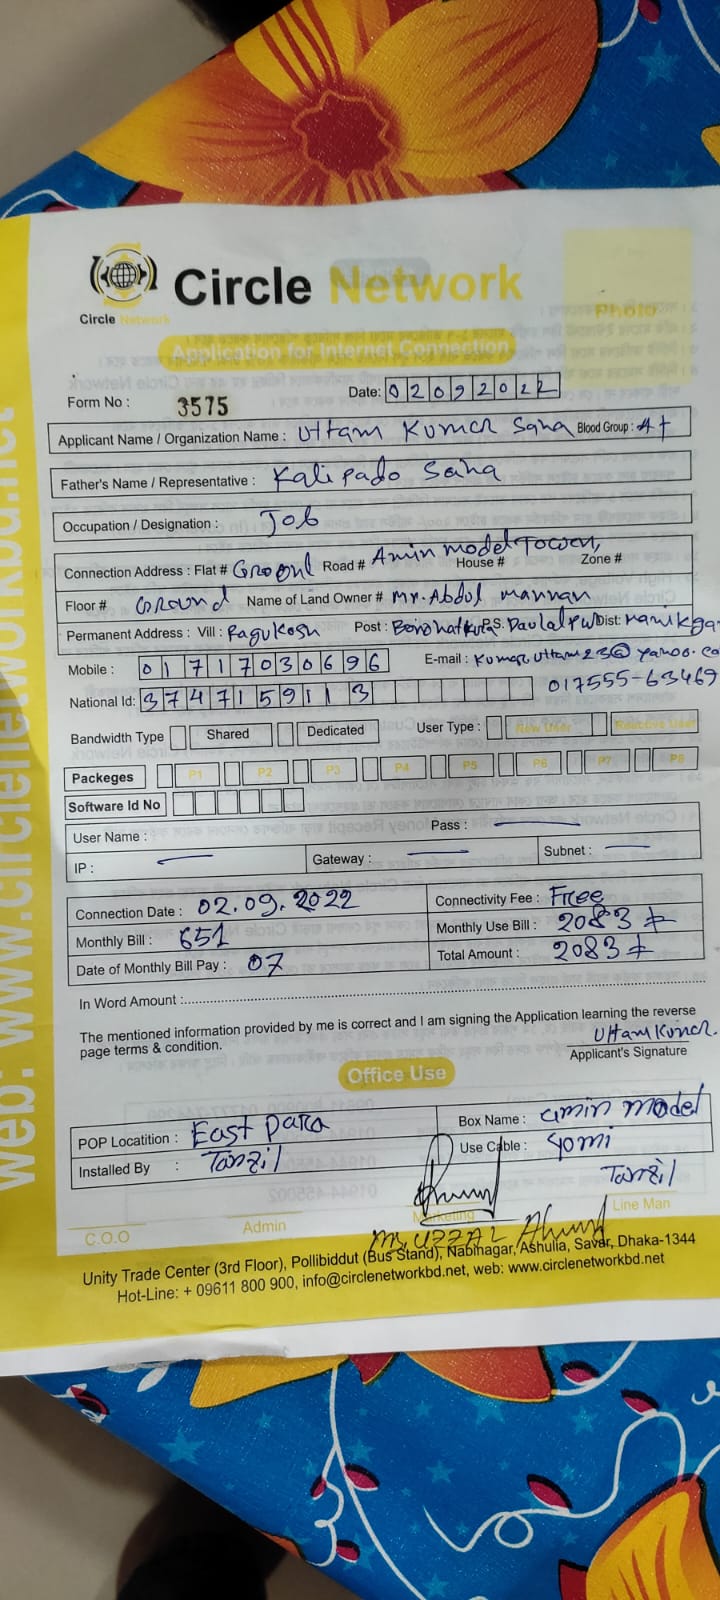 Circle Network
Circle Network
Photo
Application for Internet Connection
Form No : 3575 Date: 02092022
Applicant Name / Organization Name : Uttam Kumar Saha Blood Group : A+
Father's Name / Representative : Kalipado Saha
Occupation / Designation : Job
Connection Address : Flat # Road # Amin model Tower, House # Zone #
Floor # Ground Name of Land Owner # Mr. Abdul mannan
Permanent Address : Vill : Ragukosh Post : P.S. Daulatpur Dist: manikga
Mobile : 01717030696 E-mail : Kumar.Uttam23@yahoo.co
National Id: 3747159113 017555-63469
Bandwidth Type Shared Dedicated User Type : New User Reactive User
Packeges P1 P2 P3 P4 P5 P6 P7 P8
Software Id No
User Name : Pass : —
IP : — Gateway : — Subnet : —
Connection Date : 02.09.2022 Connectivity Fee : Free
Monthly Bill : 651 Monthly Use Bill : 2083
Date of Monthly Bill Pay : 07 Total Amount : 2083
In Word Amount :
The mentioned information provided by me is correct and I am signing the Application learning the reverse
page terms & condition.
Uttam Kumar
Applicant's Signature
Office Use
POP Locatition : East para Box Name : Amin model
Installed By : Tanzil Use Cable :
Tanzil
C.O.O Admin Marketing Line Man
Unity Trade Center (3rd Floor), Pollibiddut (Bus Stand), Nabinagar, Ashulia, Savar, Dhaka-1344
Hot-Line: + 09611 800 900, info@circlenetworkbd.net, web: www.circlenetworkbd.net
web: www.circlenetworkbd.net